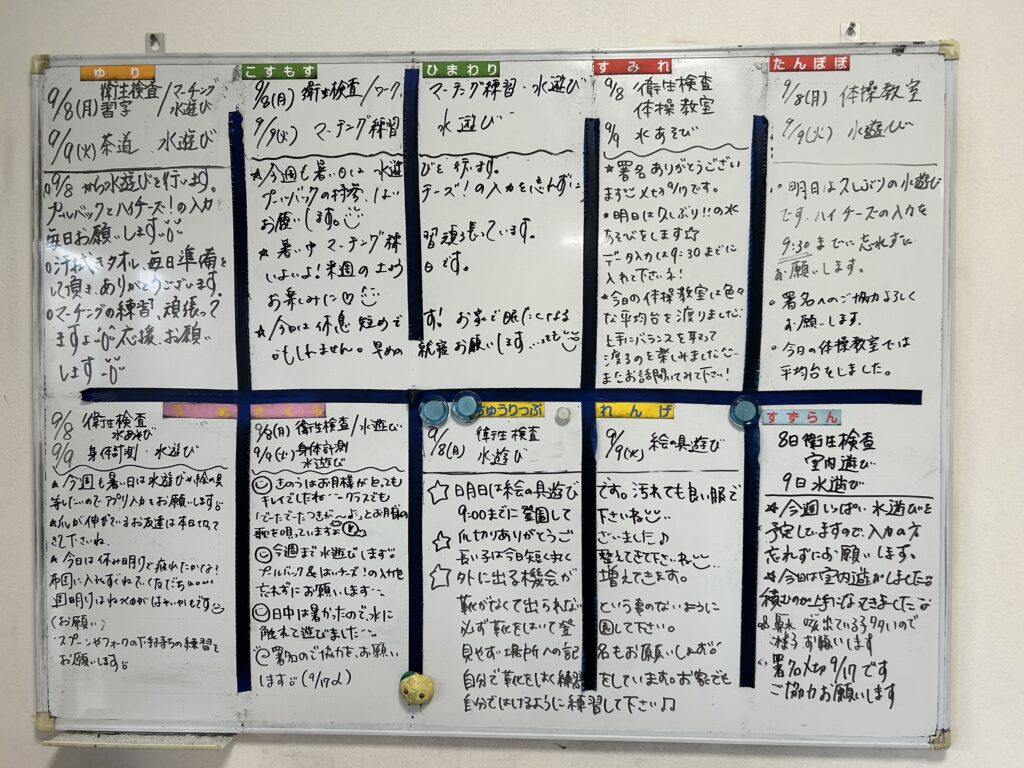 ゆり
9/8(月) 衛生検査 / マーチング
習字 水遊び
9/9(火) 茶道 水遊び
○9/8 から水遊びを行います。
プールバックとハイチーズ!の入力
毎日お願いします
○汗拭きタオル、毎日準備を
して頂き、ありがとうございます。
○マーチングの練習、頑張って
ますよ 応援、お願い
します
こすもす
9/8(月) 衛生検査 / ワーク,
9/9(火) マーチング練習
★今週も暑い日は 水遊
プールバックの持参、はい
お願いします。
★暑い中 マーチング練
いよいよ!来週の土よう
お楽しみに♡
★今日は 休息 短めで
かもしれません。早めの
ひまわり
マーチング練習・水遊び
水遊び
びを行います。
チーズ!の入力を忘れずに
習頑張っています。
日です。
す! お家で眠たくなる
就寝お願いします
すみれ
9/8 衛生検査
体操教室
9/9 水あそび
★署名ありがとうござい
ます 〆切9/17です。
★明日は久しぶり!!の水
あそびをします☆
データ入力は9:30までに
入れて下さいネ!
★今日の体操教室は色々
な平均台を渡りました!
上手にバランスを取って
渡るのを楽しみました
またお話聞いてみて下さい!
たんぽぽ
9/8(月) 体操教室
9/9(火) 水遊び
○明日は久しぶりの水遊び
です。ハイチーズの入力を
9:30 までに忘れずに
お願いします。
○署名へのご協力よろしく
お願いします。
○今日の体操教室では
平均台をしました。
うめ
9/8 衛生検査
水あそび
9/9 身体計測・水遊び
★今週も暑い日は水遊びや絵の具
等したいのでアプリ入力をお願いします
★爪が伸びているお友達は本日切って
きて下さいね。
★今日は休み明けで疲れたかな?
週明けは
(お願い)
スプーンやフォークの下持ちの練習を
お願いします
さくら
9/8(月) 衛生検査/水遊び
9/9(火) 身体計測
水遊び
きのうはお月様がとっても
キレイでしたね クラスでも
「でーたでーたつきが〜よ」とお月様の
歌を唄っています
今週まで水遊びします
プールバック&はいチーズ!の入力を
忘れずにお願いします
日中は暑かったので、水に
触れて遊びました
署名のご協力を、お願い
します (9/17〆)
ちゅうりっぷ
9/8(月) 衛生検査
水遊び
☆明日は絵の具遊び
9:00までに登園して
☆爪切りありがとうご
長い子は今日短く
☆外に出る機会が
靴がなくて出られない
必ず靴をはいて登
見やすい場所への記
自分で靴をはく練習
自分ではけるように練習して下さい♫
れんげ
9/9(火) 絵の具遊び
です。汚れても良い服で
下さいね
ざいました♪
整えてきて下さいね
増えてきます。
という事のないように
園して下さい。
名もお願いします
をしています。お家でも
すずらん
8日 衛生検査
室内遊び
9日 水遊び
★今週いっぱい 水遊びを
予定していますので、入力の方
忘れずにお願いします。
★今日は室内遊びしました
積むのが上手になってきました
鼻水 咳出ている子多いので
お願いします
署名〆切 9/17 です
ご協力お願いします